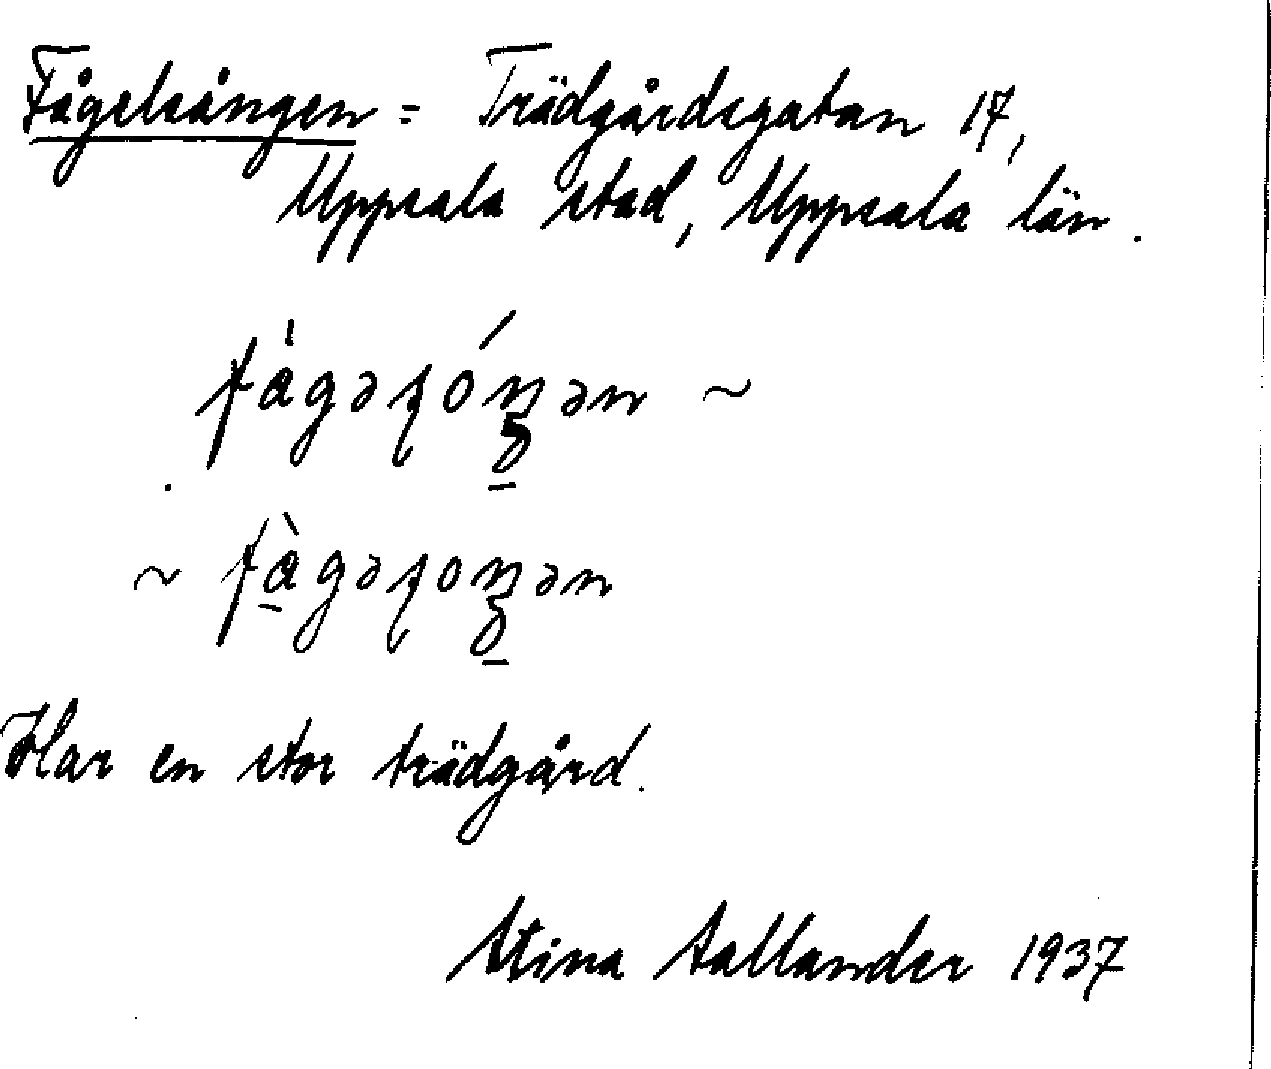 Fågelsången = Trädgårdsgatan 17,
Uppsala stad, Uppsala län.
~
~
Har en stor trädgård.
Stina Sallander 1937